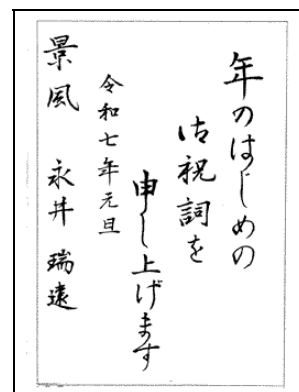 年のはじめの
御祝詞を
申し上げます
令和七年元旦
景風 永井 瑞遠